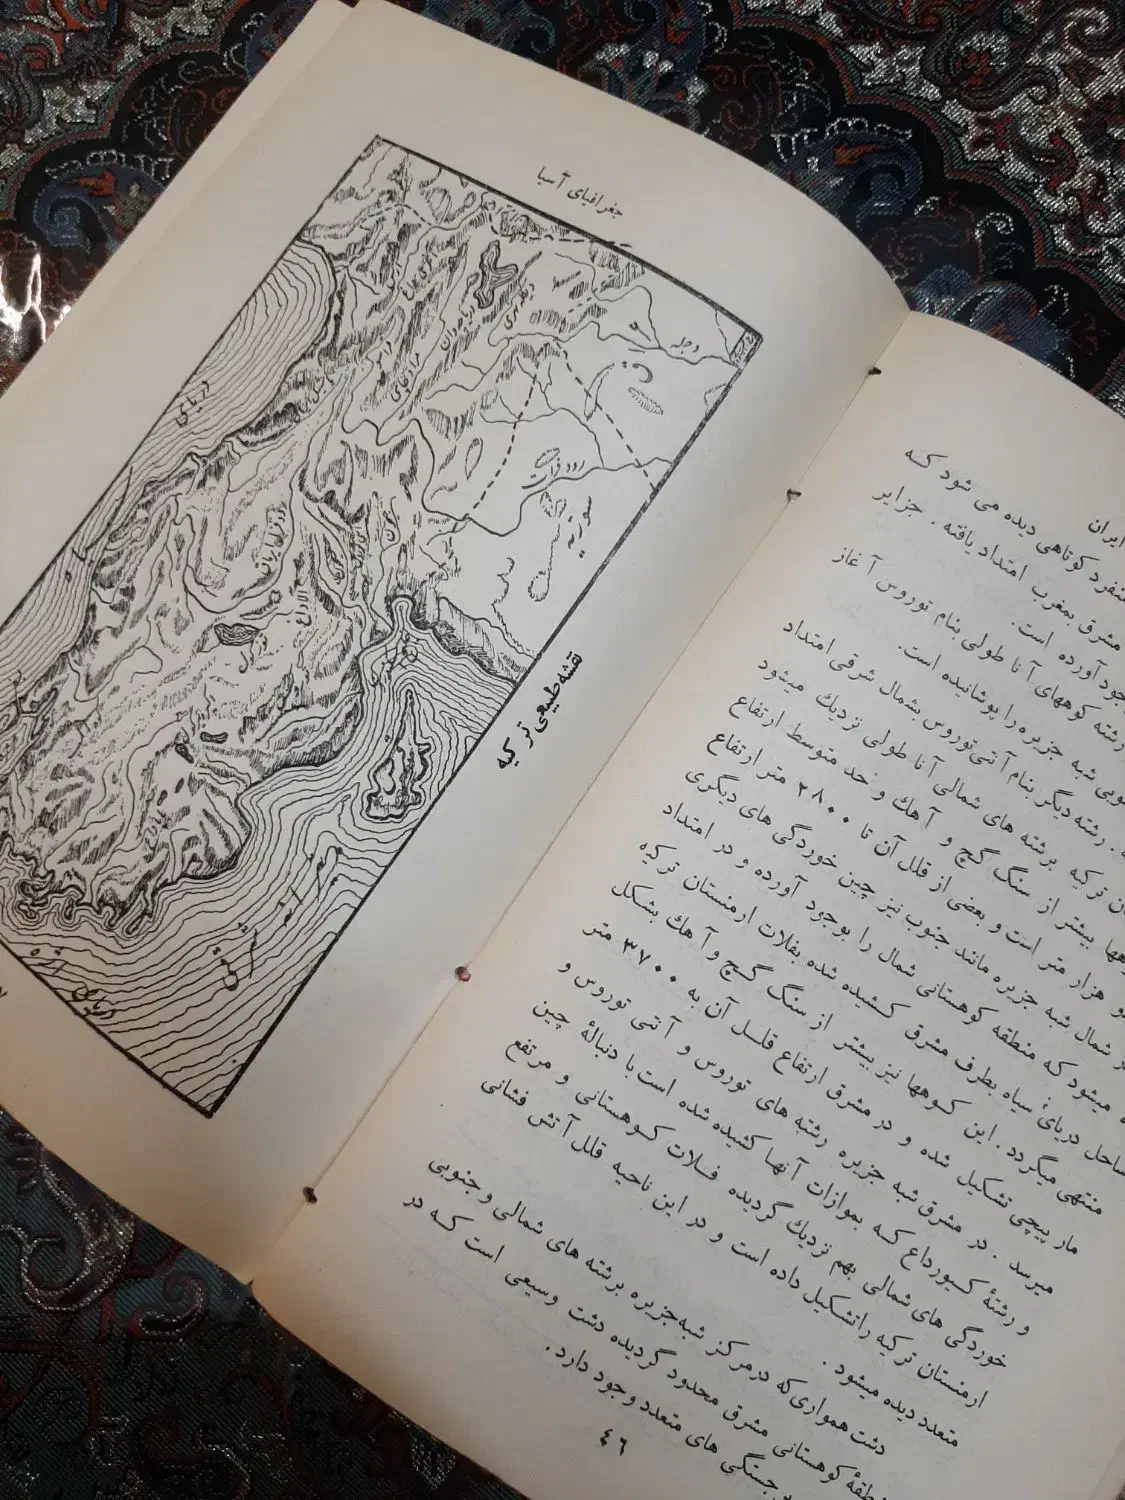 ایران
منفرد کوتاهی دیده می شود که
مشرق بمغرب امتداد یافته . جزایر
وجود آورده است .
رشته کوههای آناطولی بنام توروس آغاز
شبه جزیره را پوشانیده است .
رشته دیگر بنام آنتی توروس بشمال شرقی امتداد
ترکیه برشته های شمالی آناطولی نزدیك میشود
بیشتر از سنگ گچ و آهك و حد متوسط ارتفاع
هزار متر است و بعضی از قلل آن تا ۲۸۰۰ متر ارتفاع
شمال شبه جزیره مانند جنوب نیز چین خوردگی های دیگری
میشود که منطقه کوهستانی شمال را بوجود آورده و در امتداد
ساحل دریای سیاه بطرف مشرق کشیده شده بفلات ارمنستان ترکیه
منتهی میگردد . این کوهها نیز بیشتر از سنگ گچ و آهك بشکل
مار پیچی تشکیل شده و در مشرق ارتفاع قلل آن به ۳۷۰۰ متر
میرسد . در مشرق شبه جزیره رشته های توروس و آنتی توروس و
و رشتۀ کیورداغ که بموازات آنها کشیده شده است با دنبالۀ چین
خوردگی های شمالی بهم نزدیك گردیده فلات کوهستانی و مرتفع
ارمنستان ترکیه را تشکیل داده است و در این ناحیه قلل آتش فشانی
متعدد دیده میشود .
دشت همواری که در مرکز شبه جزیره برشته های شمالی و جنوبی
منطقۀ کوهستانی مشرق محدود گردیده دشت وسیعی است که در
جستگی های متعدد وجود دارد .
٤٦
جغرافیای آسیا
دجله
رود فرات
سوریه
دریای
نقشه طبیعی ترکیه